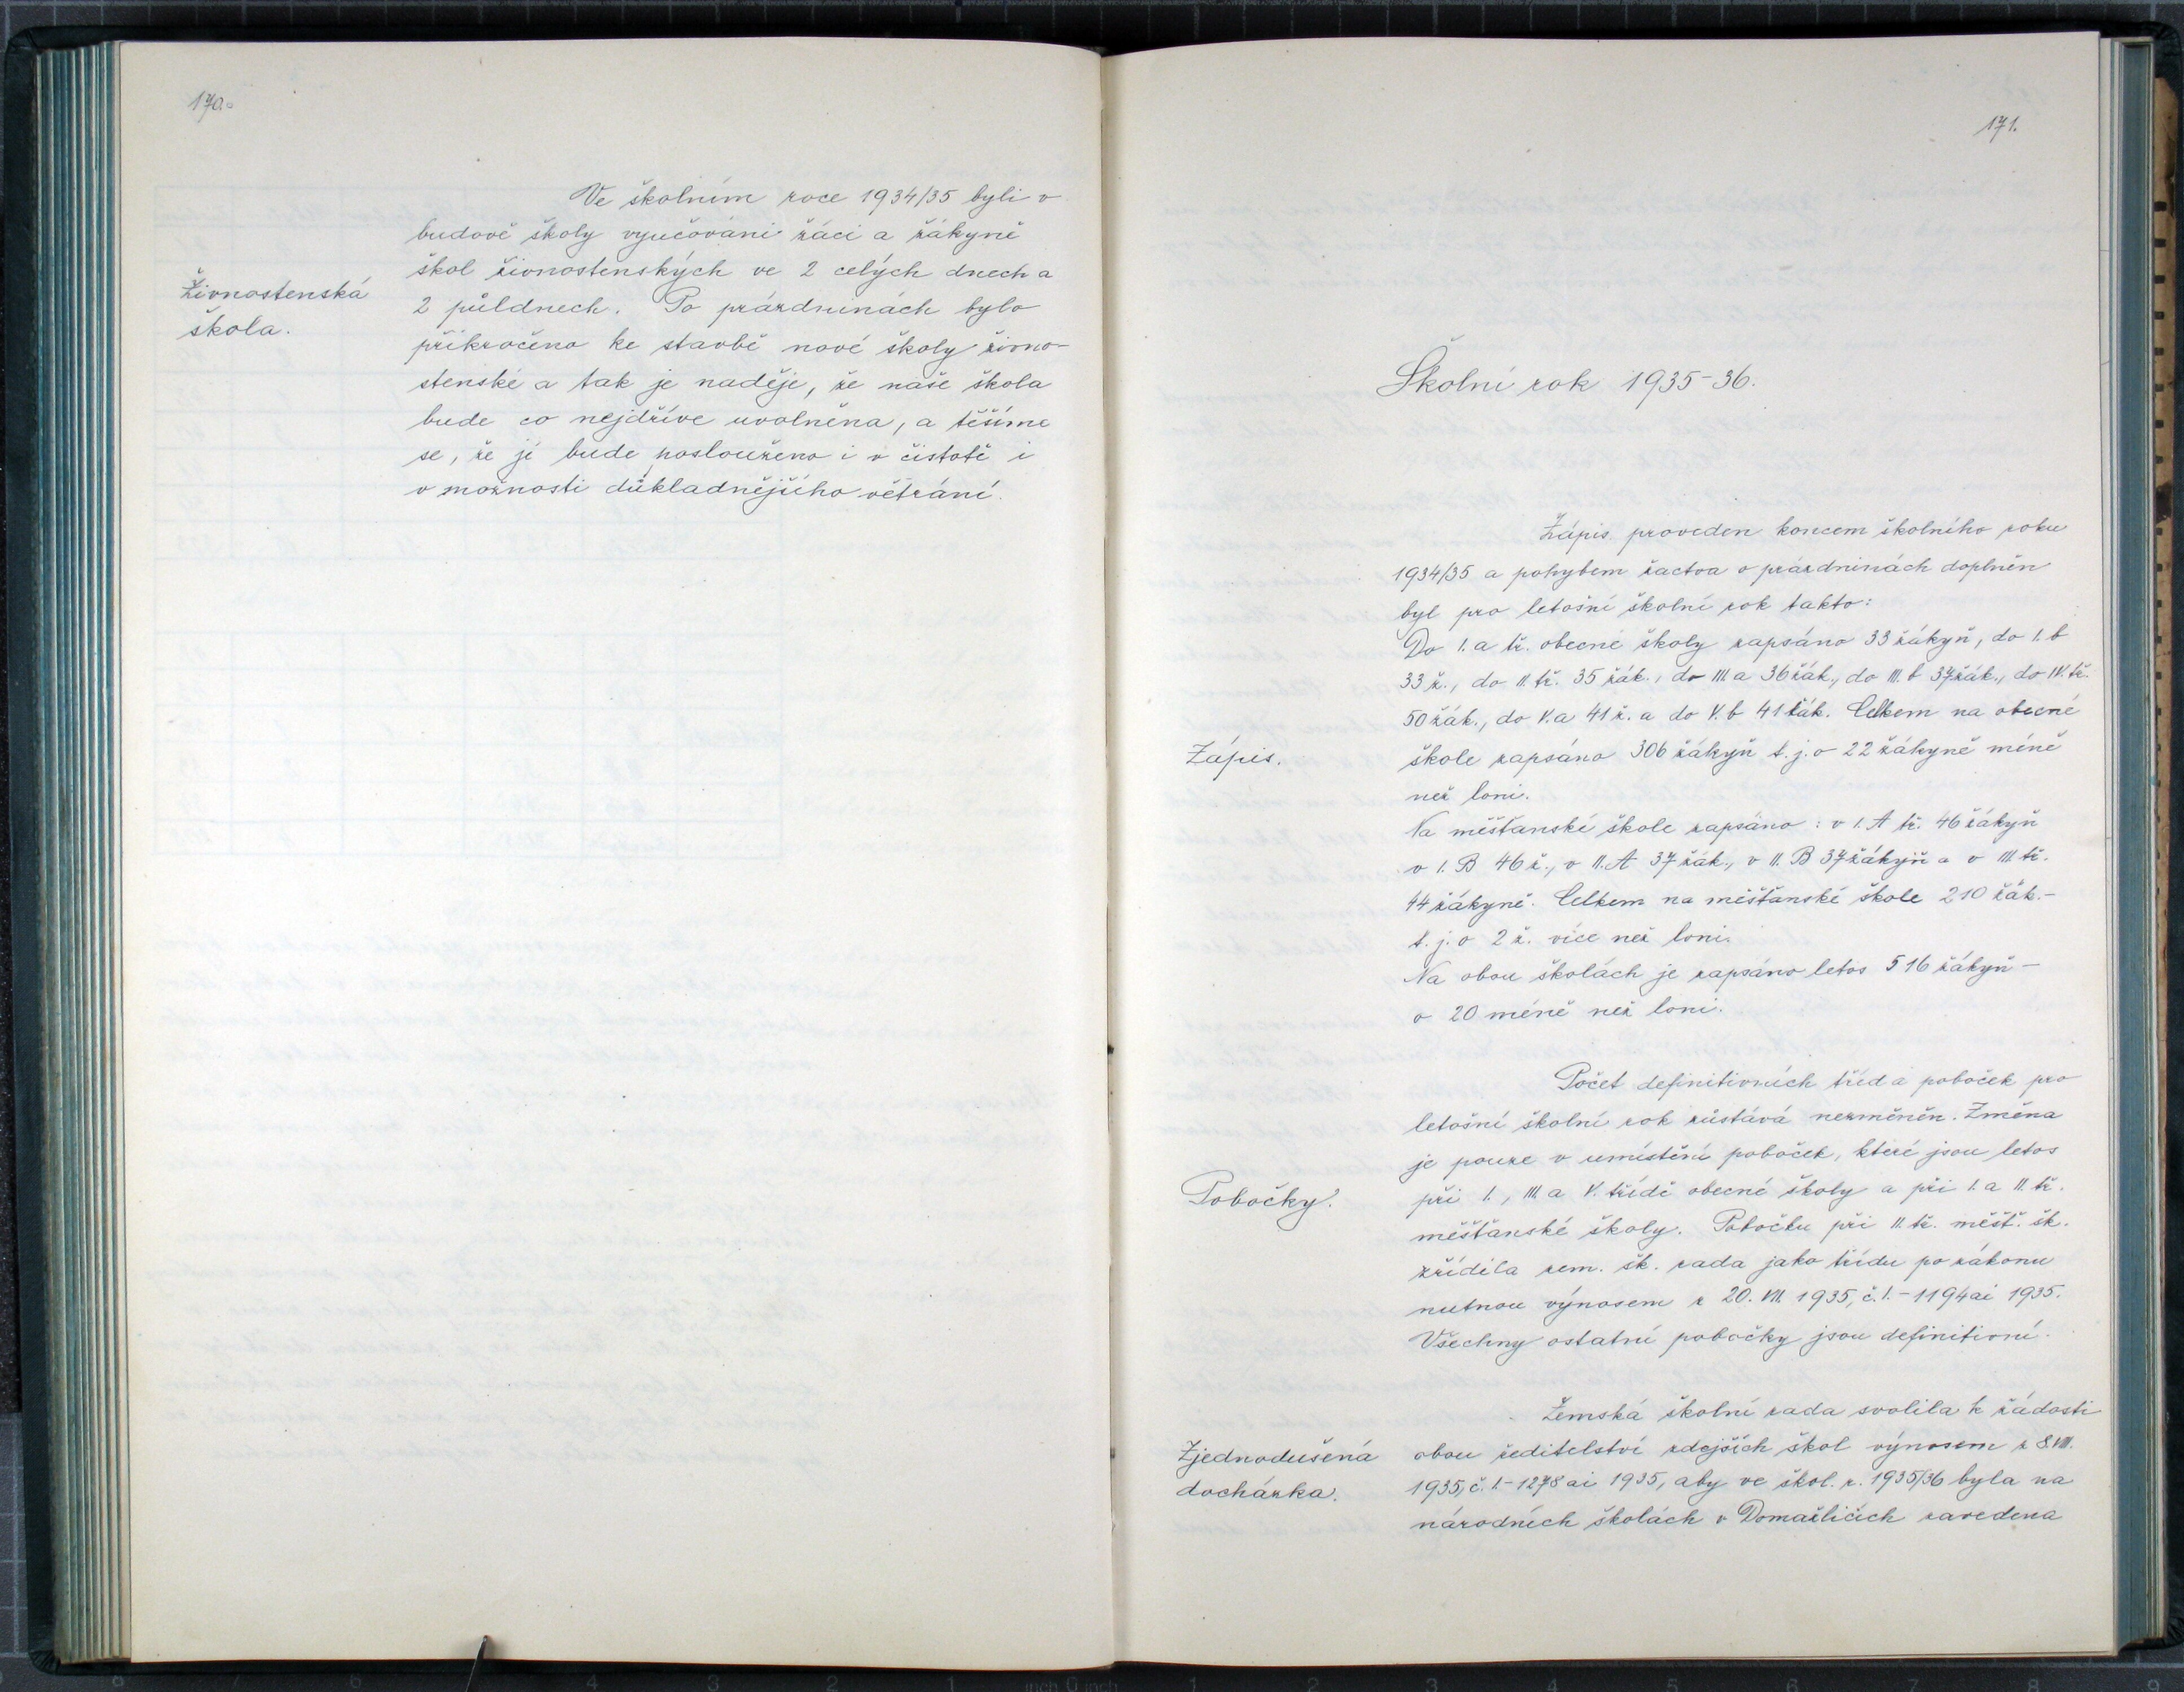 170.
Ve školním roce 1934/35 byli v
budově školy vyučováni žáci a žákyně
škol živnostenských ve 2 celých dnech a
2 půldnech. Po prázdninách bylo
přikročeno ke stavbě nové školy živno-
stenské a tak je naděje, že naše škola
bude co nejdříve uvolněna, a těšíme
se, že jí bude poslouženo i v čistotě i
v možnosti důkladnějšího větrání.
Živnostenská
škola.
171.
Školní rok 1935-36.
Zápis proveden koncem školního roku
1934/35 a pohybem žactva o prázdninách doplněn
byl pro letošní školní rok takto:
Do I. a tř. obecné školy zapsáno 33 žákyň, do I. b
33 ž., do II. tř. 35 žák., do III. a 36 žák., do III. b 37 žák., do IV. tř.
50 žák., do V. a 41 ž. a do V. b 41 žák. Celkem na obecné
škole zapsáno 306 žákyň t. j. o 22 žákyně méně
než loni.
Na měšťanské škole zapsáno: v I. A tř. 46 žákyň
v I. B 46 ž., v II. A 37 žák., v II. B 37 žákyň a v III. tř.
44 žákyně. Celkem na měšťanské škole 210 žák. -
t. j. o 2 ž. více než loni.
Na obou školách je zapsáno letos 516 žákyň -
o 20 méně než loni.
Zápis.
Počet definitivních tříd a poboček pro
letošní školní rok zůstává nezměněn. Změna
je pouze v umístění poboček, které jsou letos
při I., III. a V. třídě obecné školy a při I. a II. tř.
měšťanské školy. Pobočku při II. tř. měšť. šk.
zřídila zem. šk. rada jako třídu po zákonu
nutnou výnosem z 20. VII. 1935, č. I. - 1194 ai 1935.
Všechny ostatní pobočky jsou definitivní.
Pobočky.
Zemská školní rada svolila k žádosti
obou ředitelství zdejších škol výnosem z 8. VII.
1935, č. I. - 1278 ai 1935, aby ve škol. r. 1935/36 byla na
národních školách v Domažlicích zavedena
Zjednodušená
docházka.